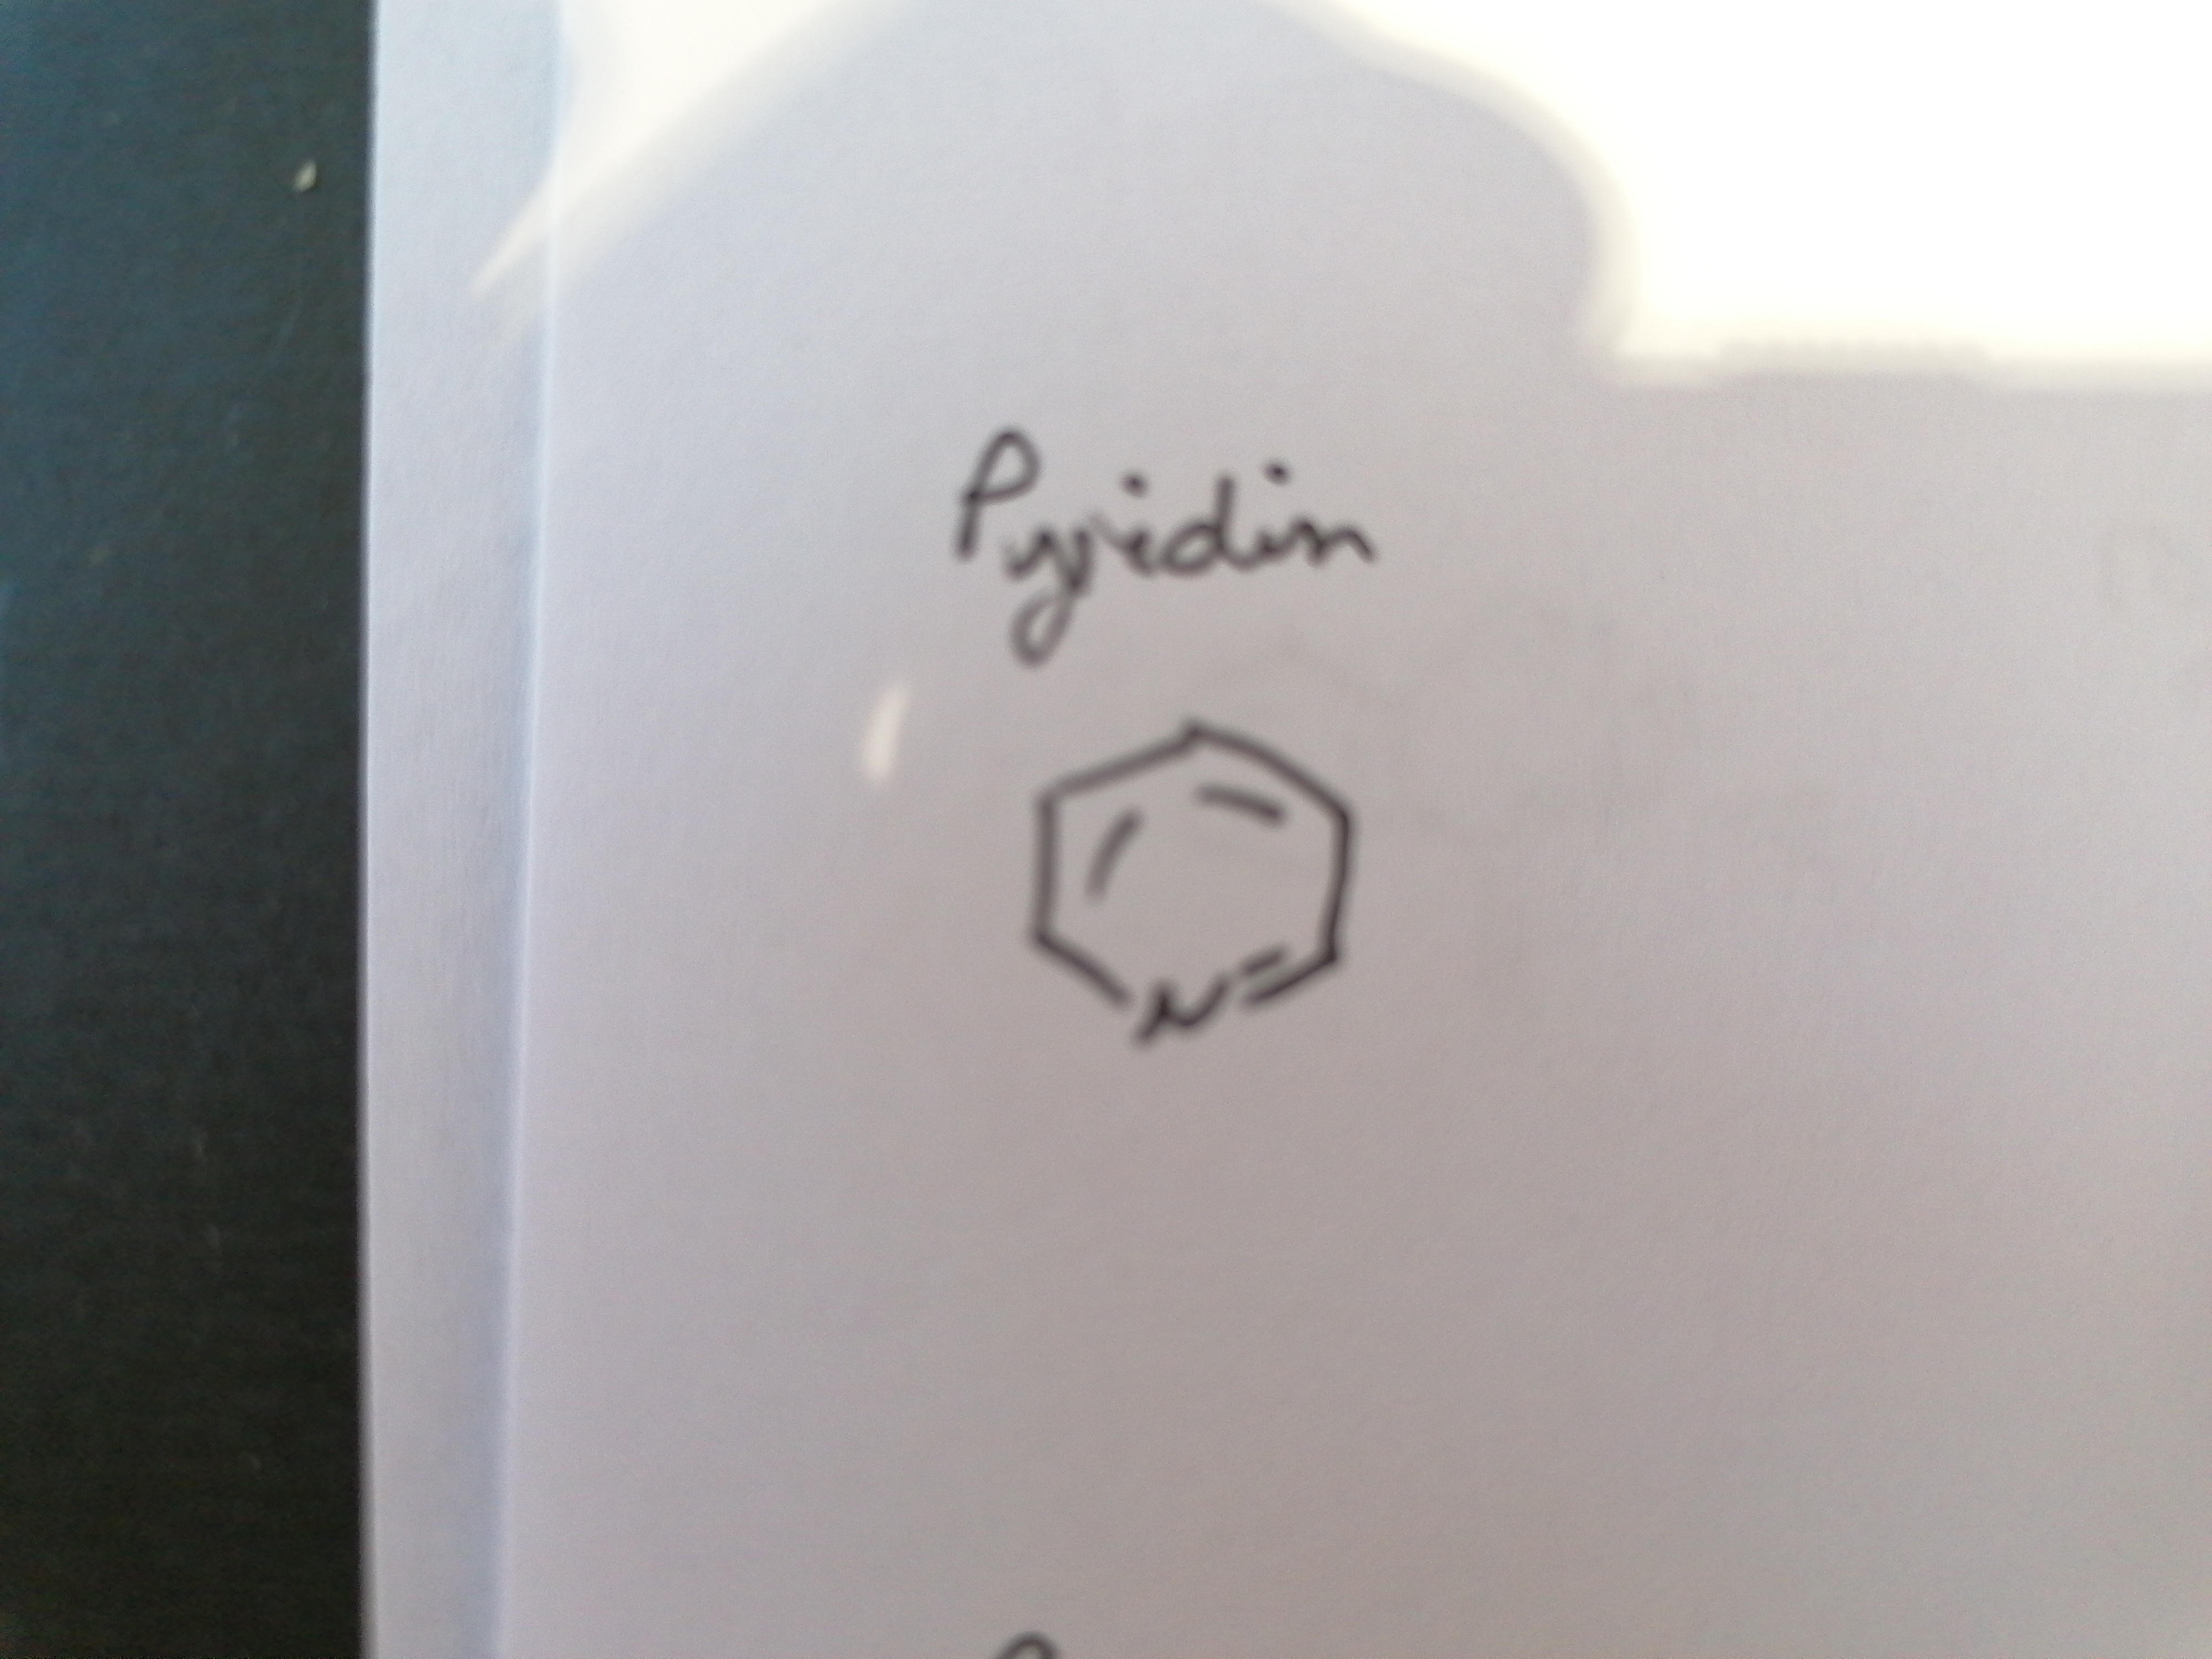 Pyridin
N